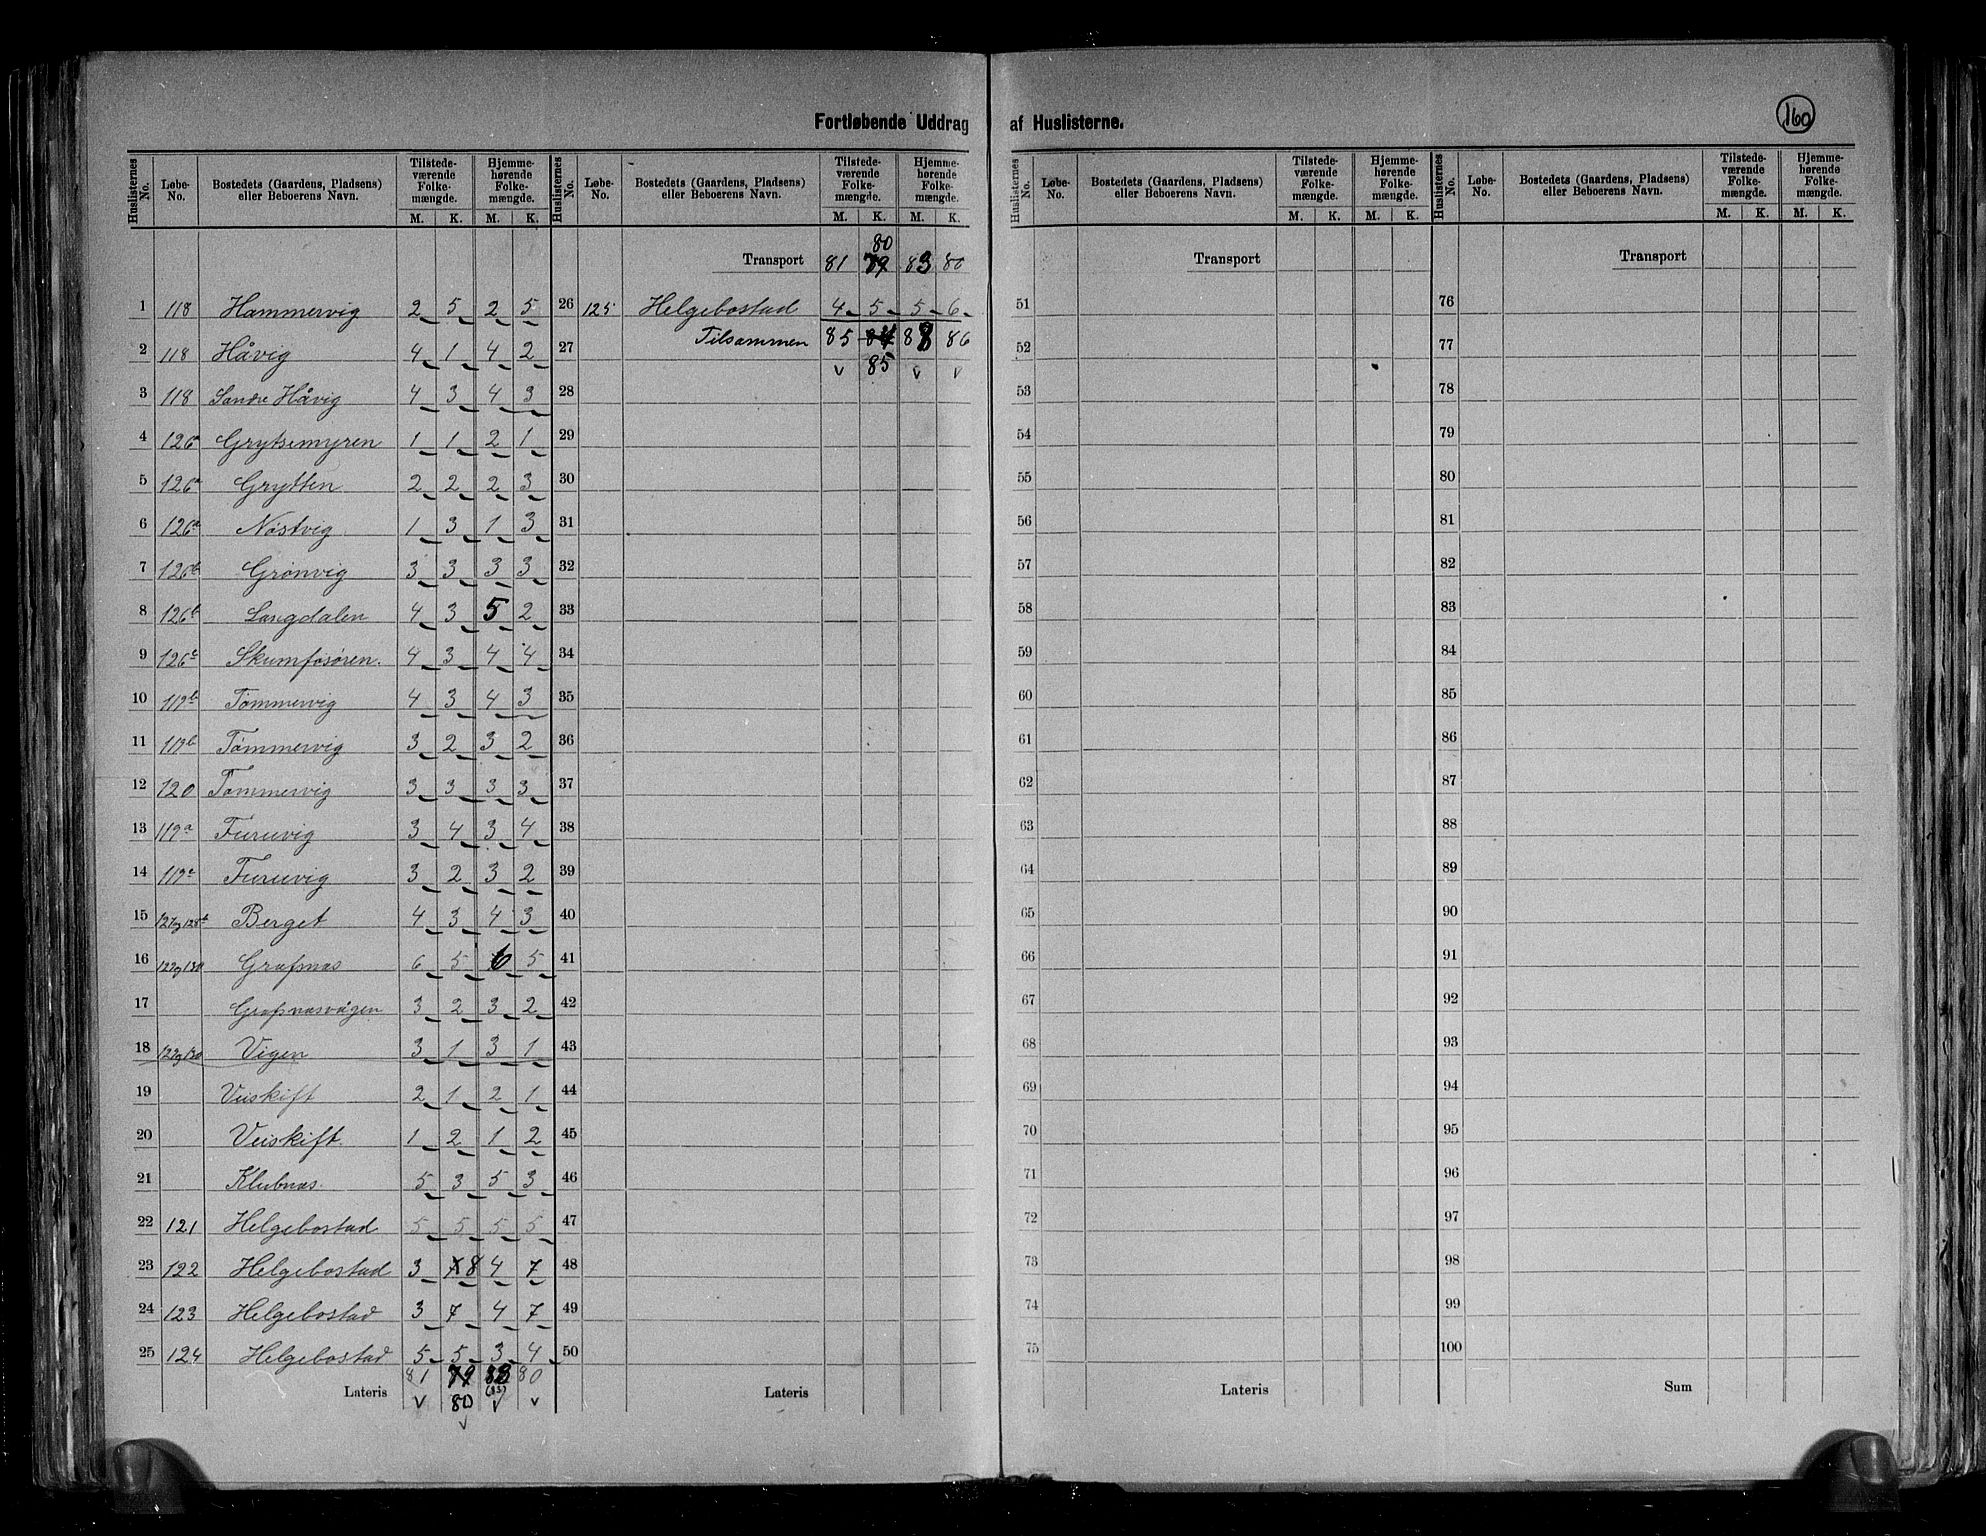 Fortløbende Uddrag af Huslisterne.
160
Huslisternes No. | Løbe-No. | Bostedets (Gaardens, Pladsens) eller Beboerens Navn. | Tilstedeværende Folkemængde. M. K. | Hjemmehørende Folkemængde. M. K.
1 118 Hammervig 2 5 2 5
2 118 Håvig 4 1 4 2
3 118 Søndre Håvig 4 3 4 3
4 126a Grytsemyren 1 1 2 1
5 126a Grytten 2 2 2 3
6 126a Nøstvig 1 3 1 3
7 126b Grønvig 3 3 3 3
8 126b Langdalen 4 3 5 2
9 126c Skumfosøren. 4 3 4 4
10 119b Tømmervig 4 3 4 3
11 119b Tømmervig 3 2 3 2
12 120 Tømmervig 3 3 3 3
13 119a Furuvig 3 4 3 4
14 119a Furuvig 3 2 3 2
15 127og128b Berget 4 3 4 3
16 127og130 Grafsnæs 6 5 6 5
17 Grafsnæsvågen 3 2 3 2
18 127og130 Vigen 3 1 3 1
19 Veiskift 2 1 2 1
20 Veiskift. 1 2 1 2
21 Klubnæs. 5 3 5 3
22 121 Helgebostad 5 5 5 5
23 122 Helgebostad 3 8 4 7
24 123 Helgebostad 3 7 4 7
25 124 Helgebostad 5 5 3 4
81 79 83 80
Lateris 80 (83)
Huslisternes No. | Løbe-No. | Bostedets (Gaardens, Pladsens) eller Beboerens Navn. | Tilstedeværende Folkemængde. M. K. | Hjemmehørende Folkemængde. M. K.
80
Transport 81 79 83 80
26 125 Helgebostad 4 5 5 6
27 Tilsammen 85 84 88 86
85
28
29
30
31
32
33
34
35
36
37
38
39
40
41
42
43
44
45
46
47
48
49
50
Lateris
Huslisternes No. | Løbe-No. | Bostedets (Gaardens, Pladsens) eller Beboerens Navn. | Tilstedeværende Folkemængde. M. K. | Hjemmehørende Folkemængde. M. K.
Transport
51
52
53
54
55
56
57
58
59
60
61
62
63
64
65
66
67
68
69
70
71
72
73
74
75
Lateris
Huslisternes No. | Løbe-No. | Bostedets (Gaardens, Pladsens) eller Beboerens Navn. | Tilstedeværende Folkemængde. M. K. | Hjemmehørende Folkemængde. M. K.
Transport
76
77
78
79
80
81
82
83
84
85
86
87
88
89
90
91
92
93
94
95
96
97
98
99
100
Sum